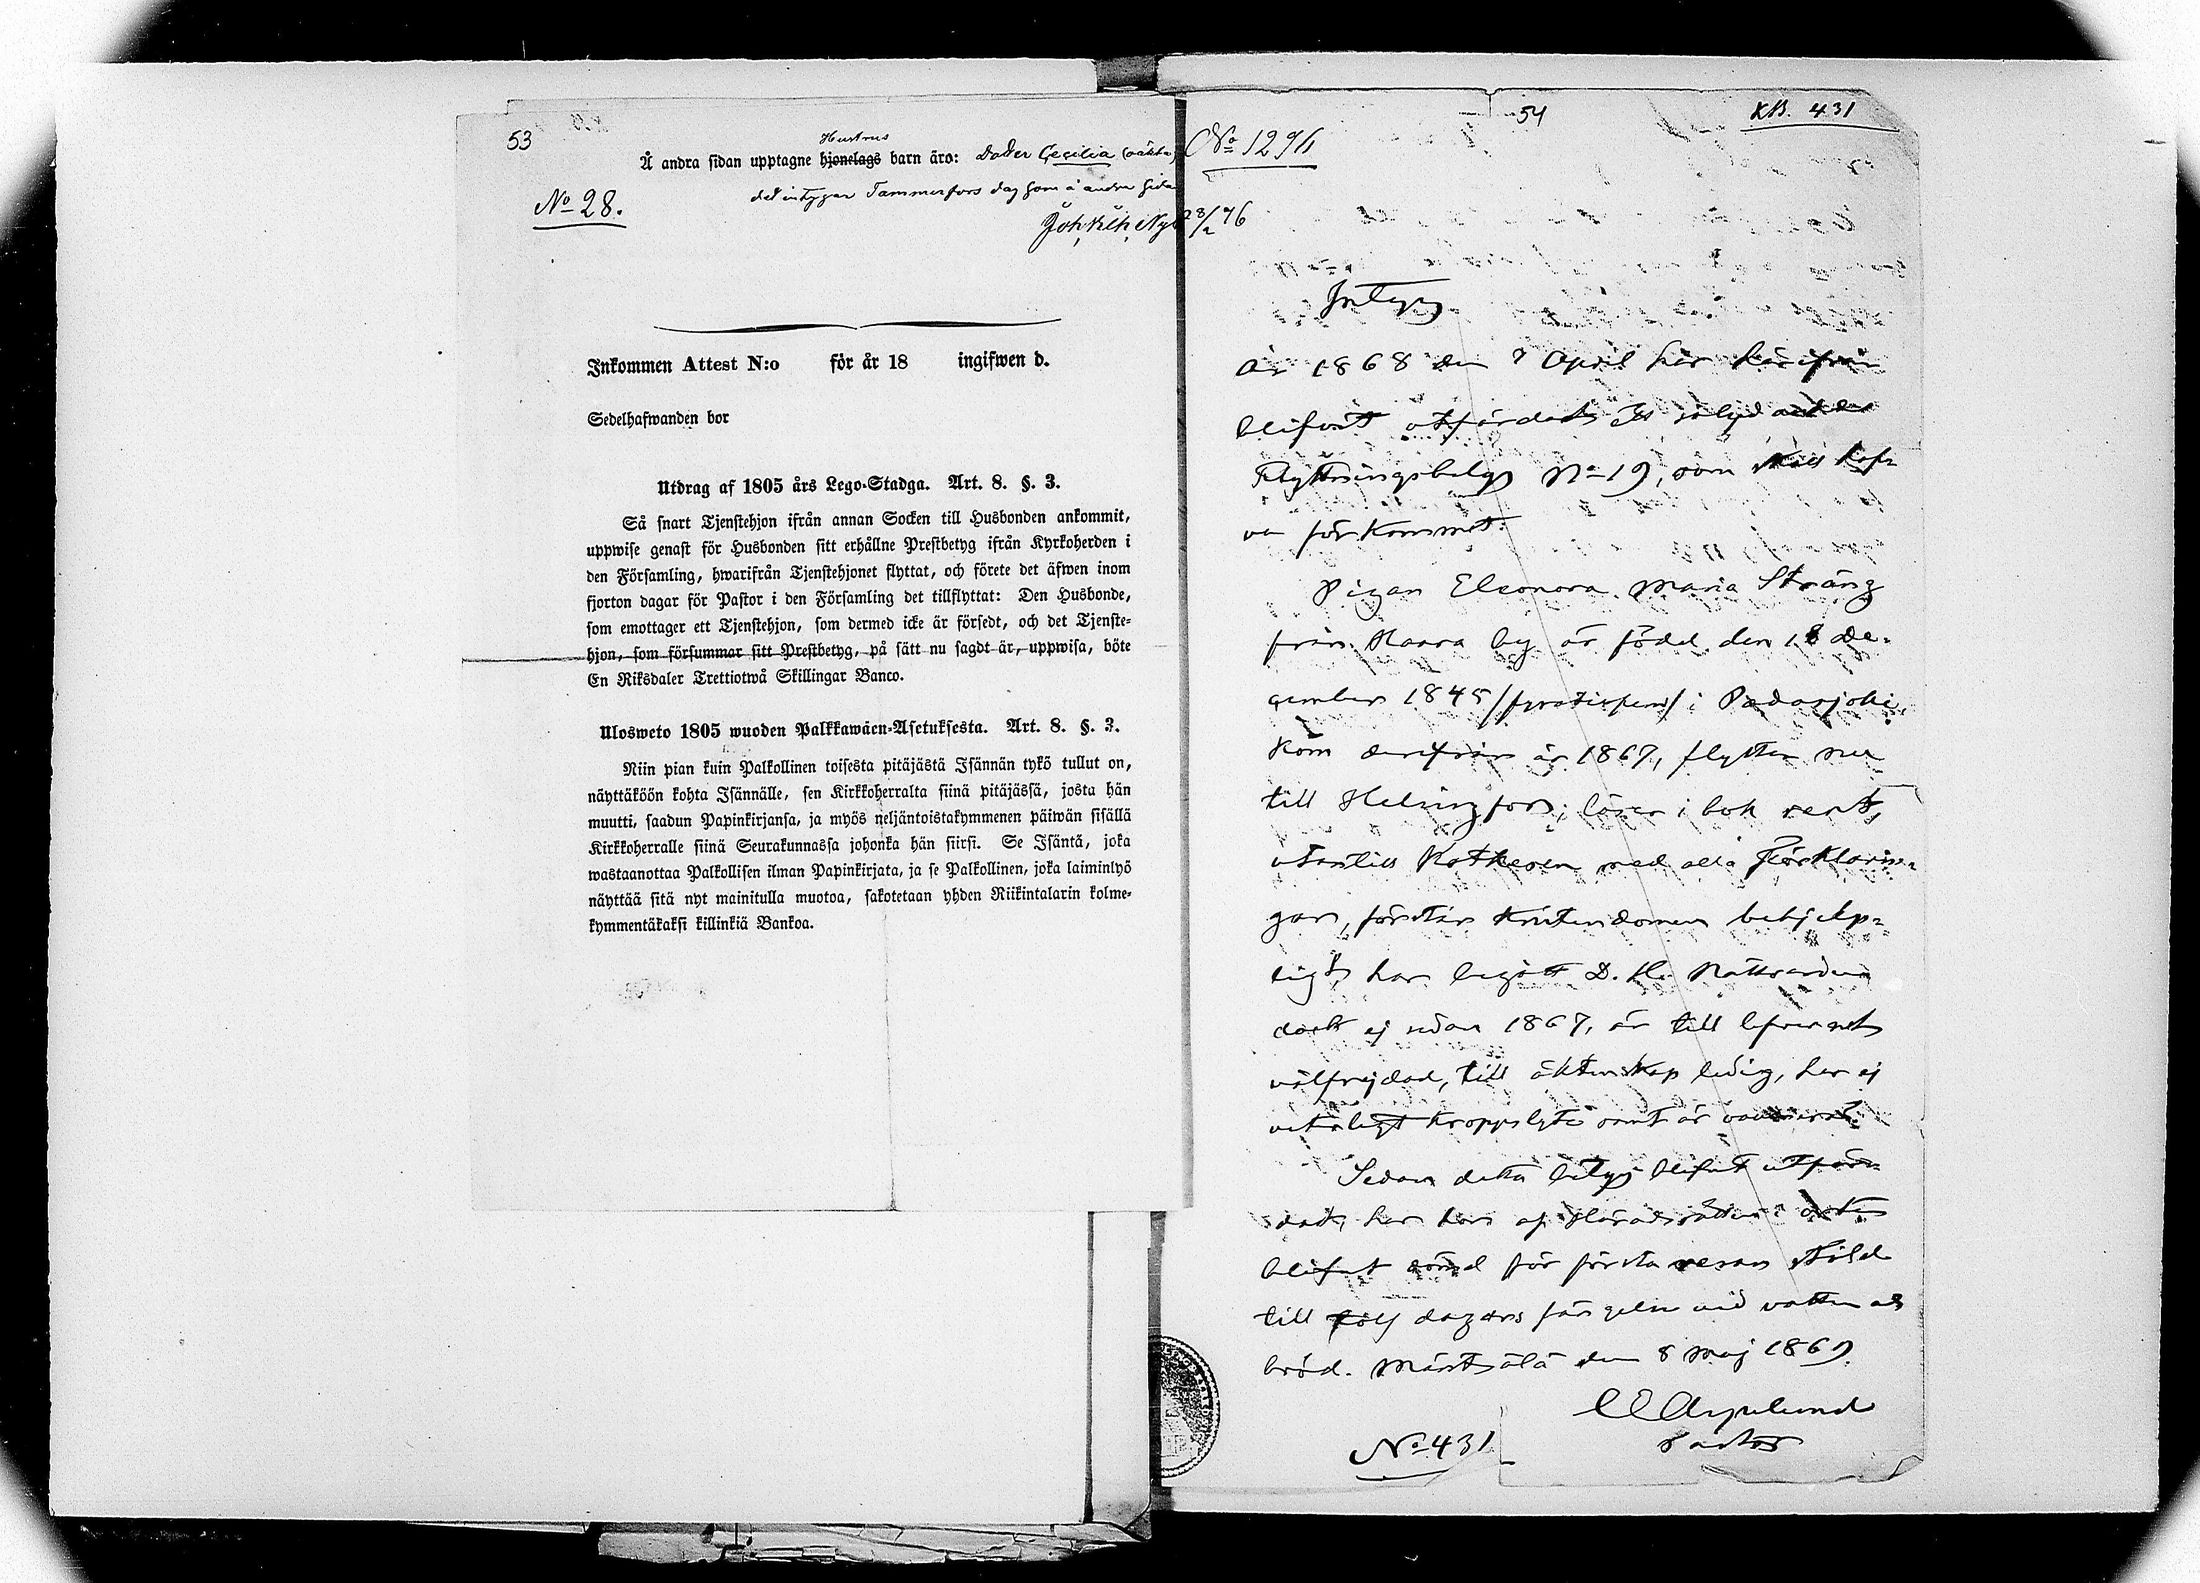 53
Hustrus
Å andra sidan upptagne hjonelags barn äro: Dotter Cecilia (oäkta)
det intygar Tammerfors dag som å andra sida
No 28.
Inkommen Attest N:o för år 18 ingifwen d.
Sedelhafwanden bor
Utdrag af 1805 års Lego-Stadga. Art. 8. §. 3.
Så snart Tjenstehjon ifrån annan Socken till Husbonden ankommit,
uppwise genast för Husbonden sitt erhållne Prestbetyg ifrån Kyrkoherden i
den Församling, hwarifrån Tjenstehjonet flyttat, och förete det äfwen inom
fjorton dagar för Pastor i den Församling det tillflyttat: Den Husbonde,
som emottager ett Tjenstehjon, som dermed icke är försedt, och det Tjenste-
hjon, som försummar sitt Prestbetyg, på sätt nu sagdt är, uppwisa, böte
En Riksdaler Trettiotwå Skillingar Banco.
Ulosweto 1805 wuoden Palkkawäen-Asetuksesta. Art. 8. §. 3.
Niin pian kuin Palkollinen toisesta pitäjästä Isännän tykö tullut on,
näyttäköön kohta Isännälle, sen Kirkkoherralta siinä pitäjässä, josta hän
muutti, saadun Papinkirjansa, ja myös neljäntoistakymmenen päiwän sisällä
Kirkkoherralle siinä Seurakunnassa johonka hän siirsi. Se Isäntä, joka
wastaanottaa Palkollisen ilman Papinkirjata, ja se Palkollinen, joka laiminlyö
näyttää sitä nyt mainitulla muotoa, sakotetaan yhden Riikintalarin kolme-
kymmentäkaksi killinkiä Bankoa.
54
KB. 431
No 1296
28/2 76
Intyg
År 1868 den 7 April har härifrån
blifvit utfärdadt ett sålydande
Flyttningsbetyg No 19, som skall haf-
va förkommit.
Pigan Eleonora Maria Sträng
från Kaara by är född den 18 De-
cember 1845 /fyratiofem/ i Padasjoki,
kom derifrån år 1867, flyttar nu
till Helsingfors; läser i bok rent,
utantill Kathesen med alla Förklarin-
gar, förstår Kristendomen behjelp-
ligt, har begått D. H. Nattvarden
dock ej sedan 1867, är till lefvernet
välfrejdad, till äktenskap ledig, har ej
vitterligt kroppslyte samt är vaccinerad.
Sedan detta betyg blifvit utfär-
dadt, har hon af Häradsrätten i orten
blifvit dömd för första resan stöld
till tolf dagars fängelse vid vatten och
bröd. Mäntsälä den 8 Maj 1869.
Pastor
No 431